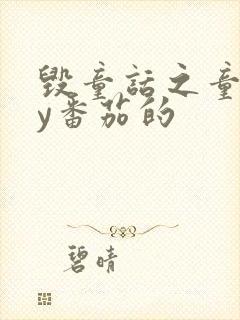 毁童话之童
y番茄的
碧晴